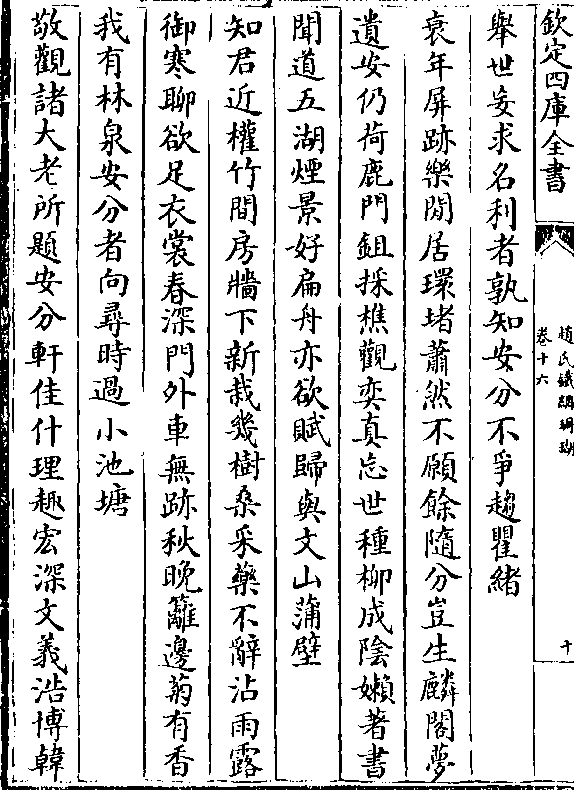 欽定四庫全書
趙氏鐵網珊瑚
卷十六
十
舉世妄求名利者孰知安分不爭趨瞿緒
衰年屏跡樂閒居環堵蕭然不願餘隨分豈生麟閣夢
遺安仍荷鹿門鉏採樵觀奕真忘世種柳成陰嬾著書
聞道五湖煙景好扁舟亦欲賦歸與文山蒲壁
知君近權竹間房牆下新栽幾樹桑采藥不辭沾雨露
御寒聊欲足衣裳春深門外車無跡秋晚籬邊菊有香
我有林泉安分者向尋時過小池塘
敬觀諸大老所題安分軒佳什理趣宏深文義浩博韓